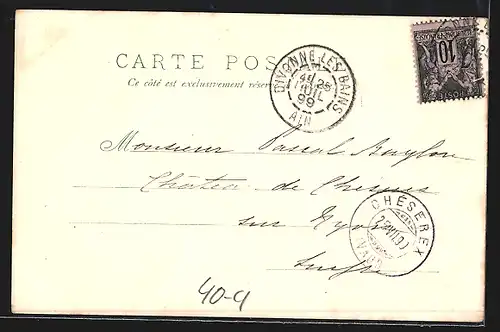 CARTE POS
Ce côté est exclusivement réser
DIVONNE-LES-BAINS
25
JUIL
99
AIN
10
Monsieur Pascal Baylon
Château de
sur Nyon
Suisse
CHÉSEREX
40-9